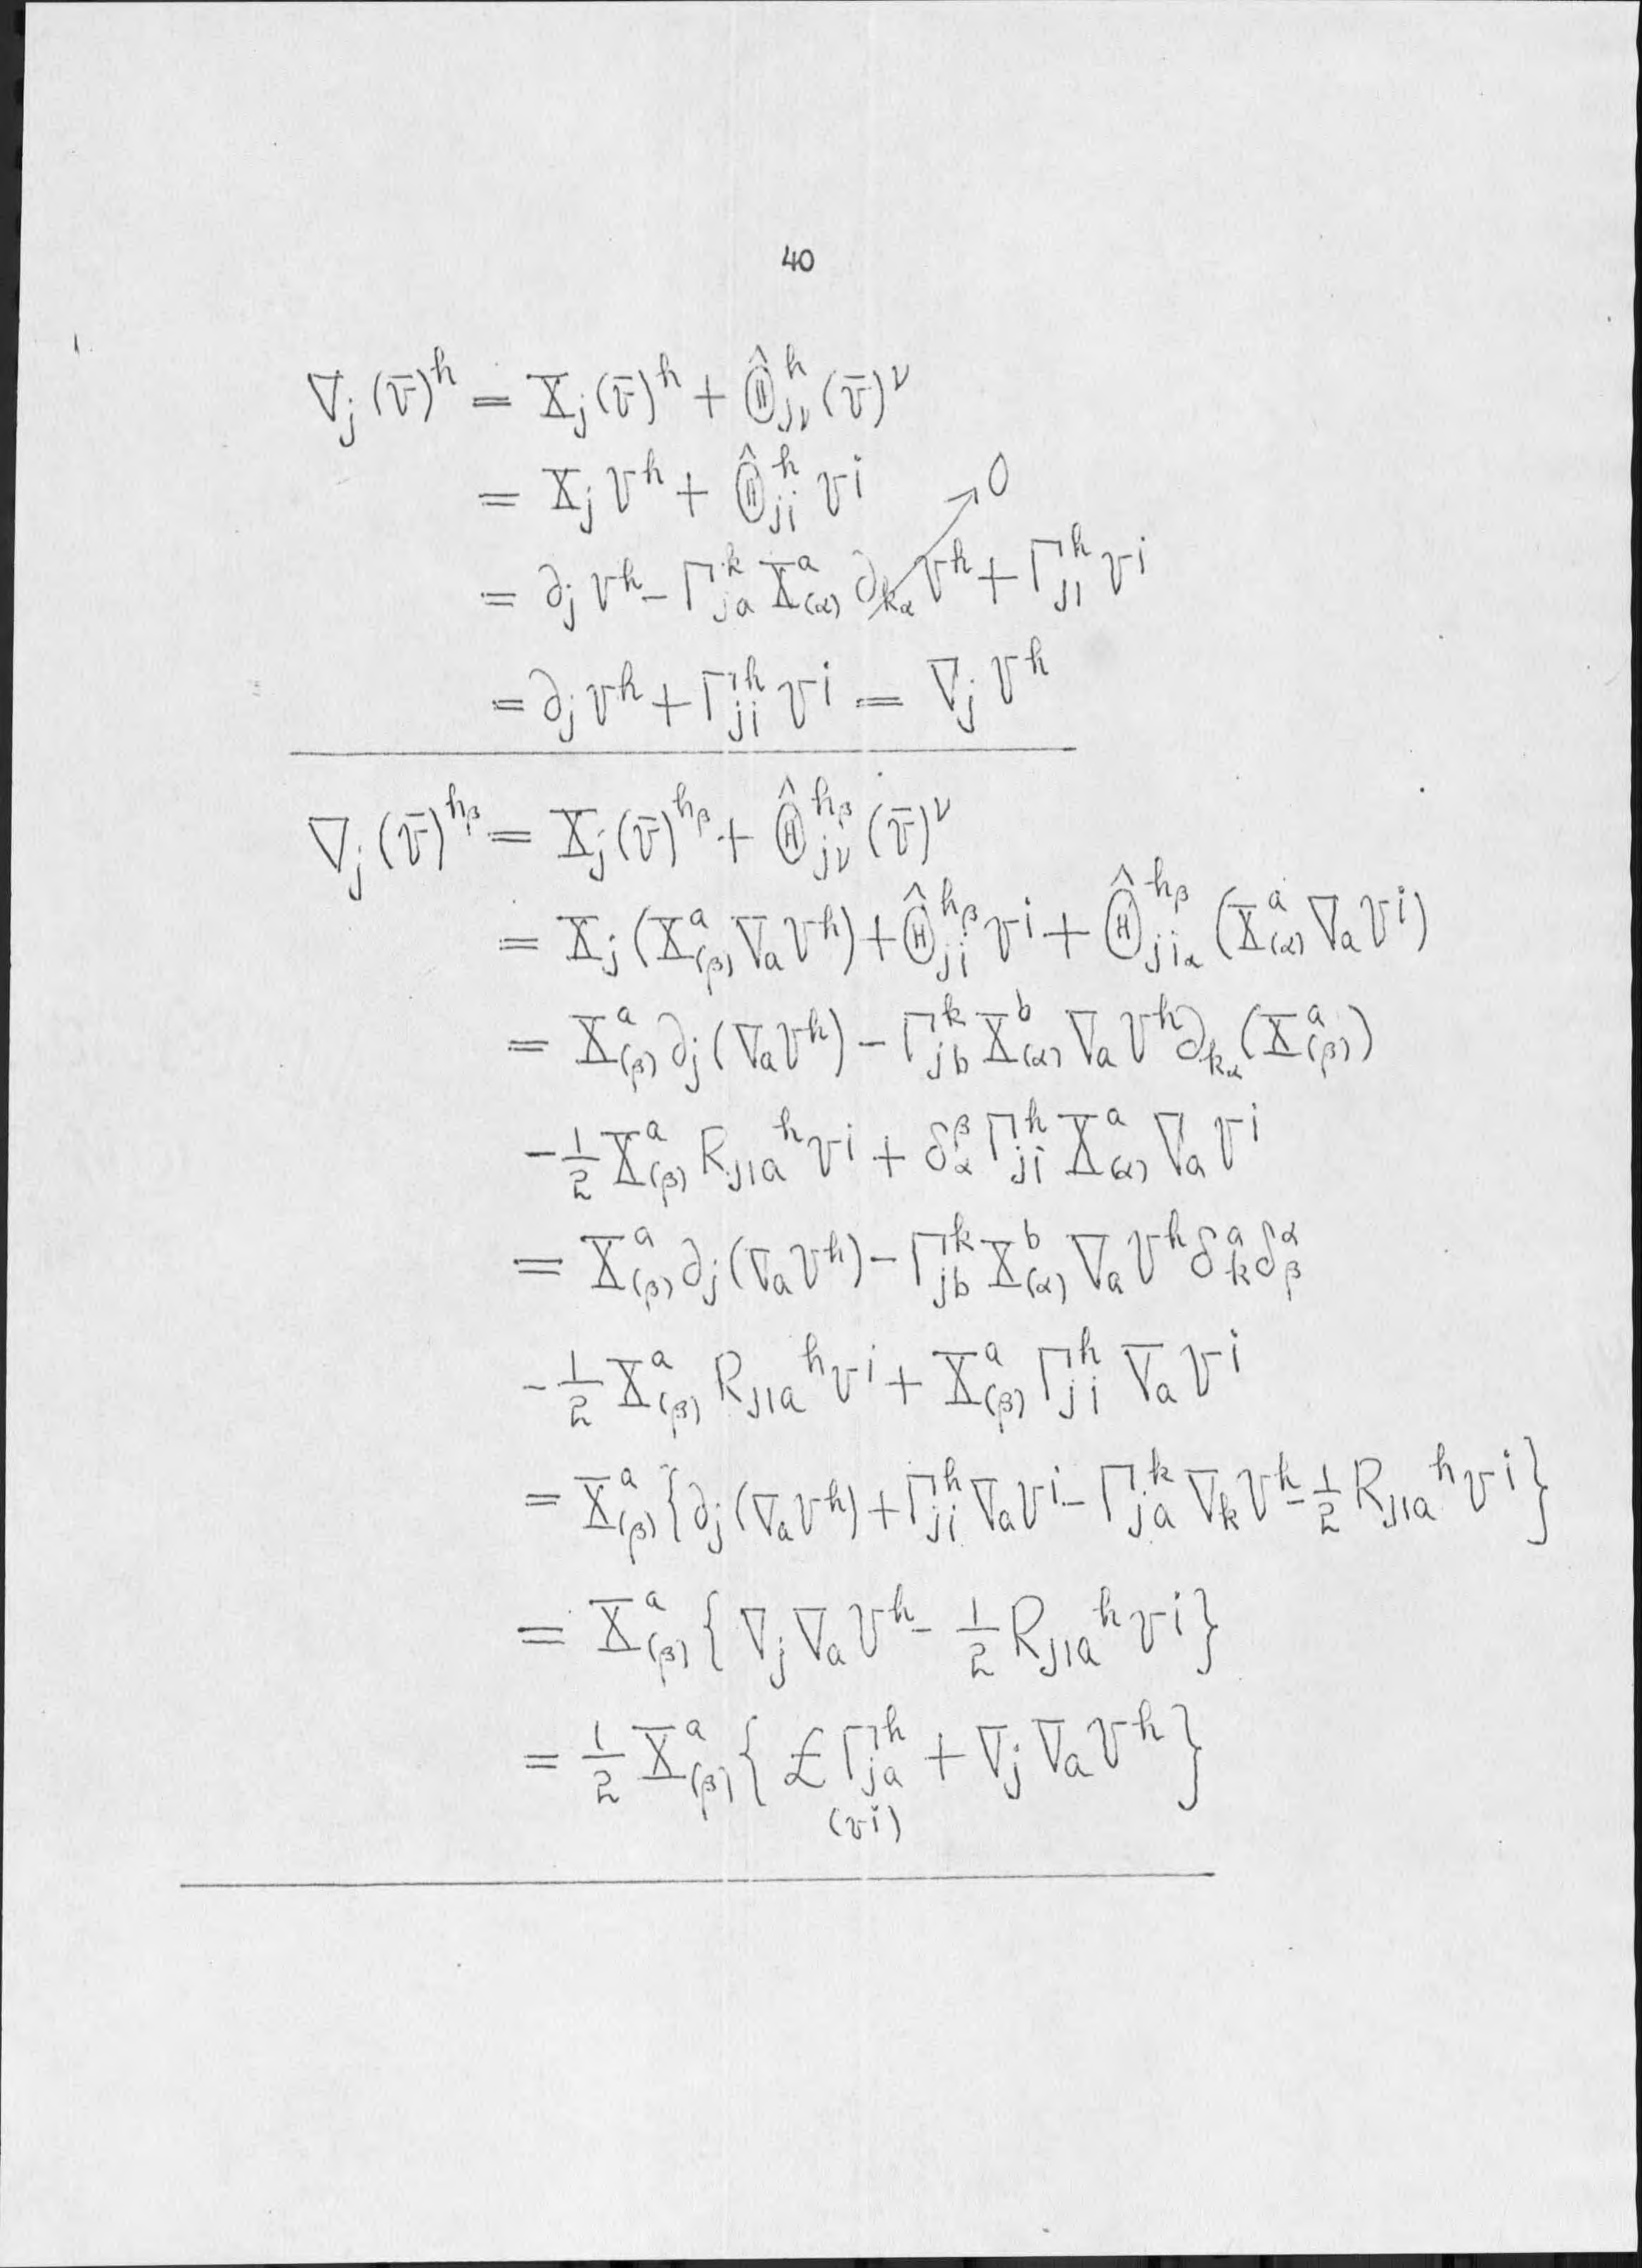 40
∇_j (v̄)^h = X_j (v̄)^h + Θ̂_{jν}^h (v̄)^ν
= X_j v^h + Θ̂_{ji}^h v^i
= ∂_j v^h - Γ_{ja}^k X_{(α)}^a ∂_{k_α} v^h → 0 + Γ_{ji}^h v^i
= ∂_j v^h + Γ_{ji}^h v^i = ∇_j v^h
∇_j (v̄)^{h_β} = X_j (v̄)^{h_β} + Θ̂_{jν}^{h_β} (v̄)^ν
= X_j (X_{(β)}^a ∇_a v^h) + Θ̂_{ji}^{h_β} v^i + Θ̂_{ji_α}^{h_β} (X_{(α)}^a ∇_a v^i)
= X_{(β)}^a ∂_j (∇_a v^h) - Γ_{jb}^k X_{(α)}^b ∇_a v^h ∂_{k_α} (X_{(β)}^a)
- 1/2 X_{(β)}^a R_{jia}^h v^i + δ_α^β Γ_{ji}^h X_{(α)}^a ∇_a v^i
= X_{(β)}^a ∂_j (∇_a v^h) - Γ_{jb}^k X_{(α)}^b ∇_a v^h δ_k^a δ_β^α
- 1/2 X_{(β)}^a R_{jia}^h v^i + X_{(β)}^a Γ_{ji}^h ∇_a v^i
= X_{(β)}^a {∂_j (∇_a v^h) + Γ_{ji}^h ∇_a v^i - Γ_{ja}^k ∇_k v^h - 1/2 R_{jia}^h v^i}
= X_{(β)}^a {∇_j ∇_a v^h - 1/2 R_{jia}^h v^i}
= 1/2 X_{(β)}^a {£ Γ_{ja}^h + ∇_j ∇_a v^h}
(v^i)